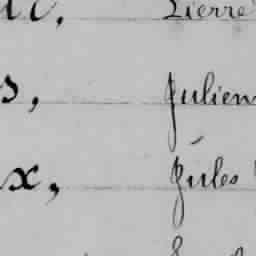 Pierre
s, Julien
x, Jules